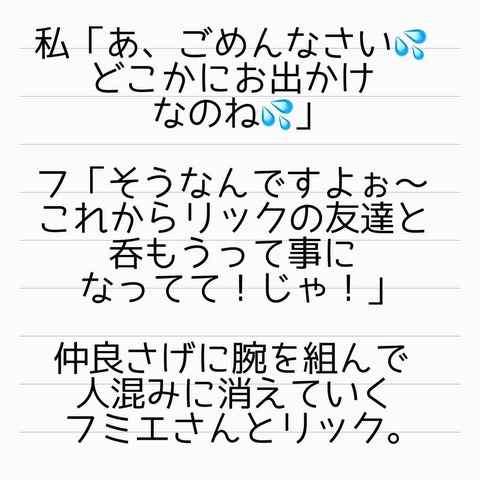 私「あ、ごめんなさい💦
どこかにお出かけ
なのね💦」
フ「そうなんですよぉ〜
これからリックの友達と
呑もうって事に
なってて！じゃ！」
仲良さげに腕を組んで
人混みに消えていく
フミエさんとリック。